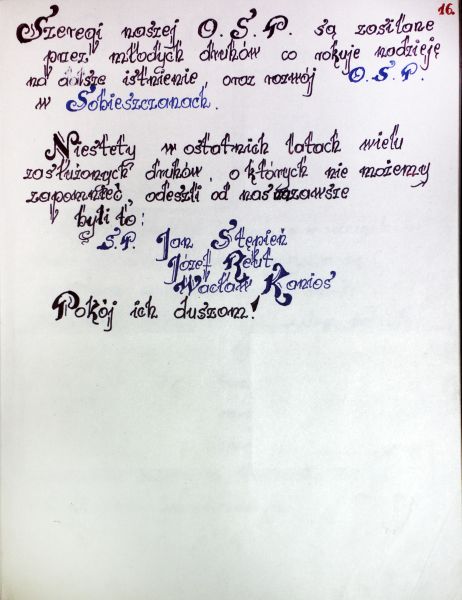 16.
Szeregi naszej O.S.P. są zasilane
przez młodych druhów co rokuje nadzieję
na dalsze istnienie, oraz rozwój O.S.P.
w Sobieszczanach.
Niestety w ostatnich latach wielu
zasłużonych druhów, o których nie możemy
zapomnieć, odeszli od nas nazawsze
byli to:
Ś.P. Jan Stępień
Józef Rekut
Wacław Konios
Pokój ich duszom!